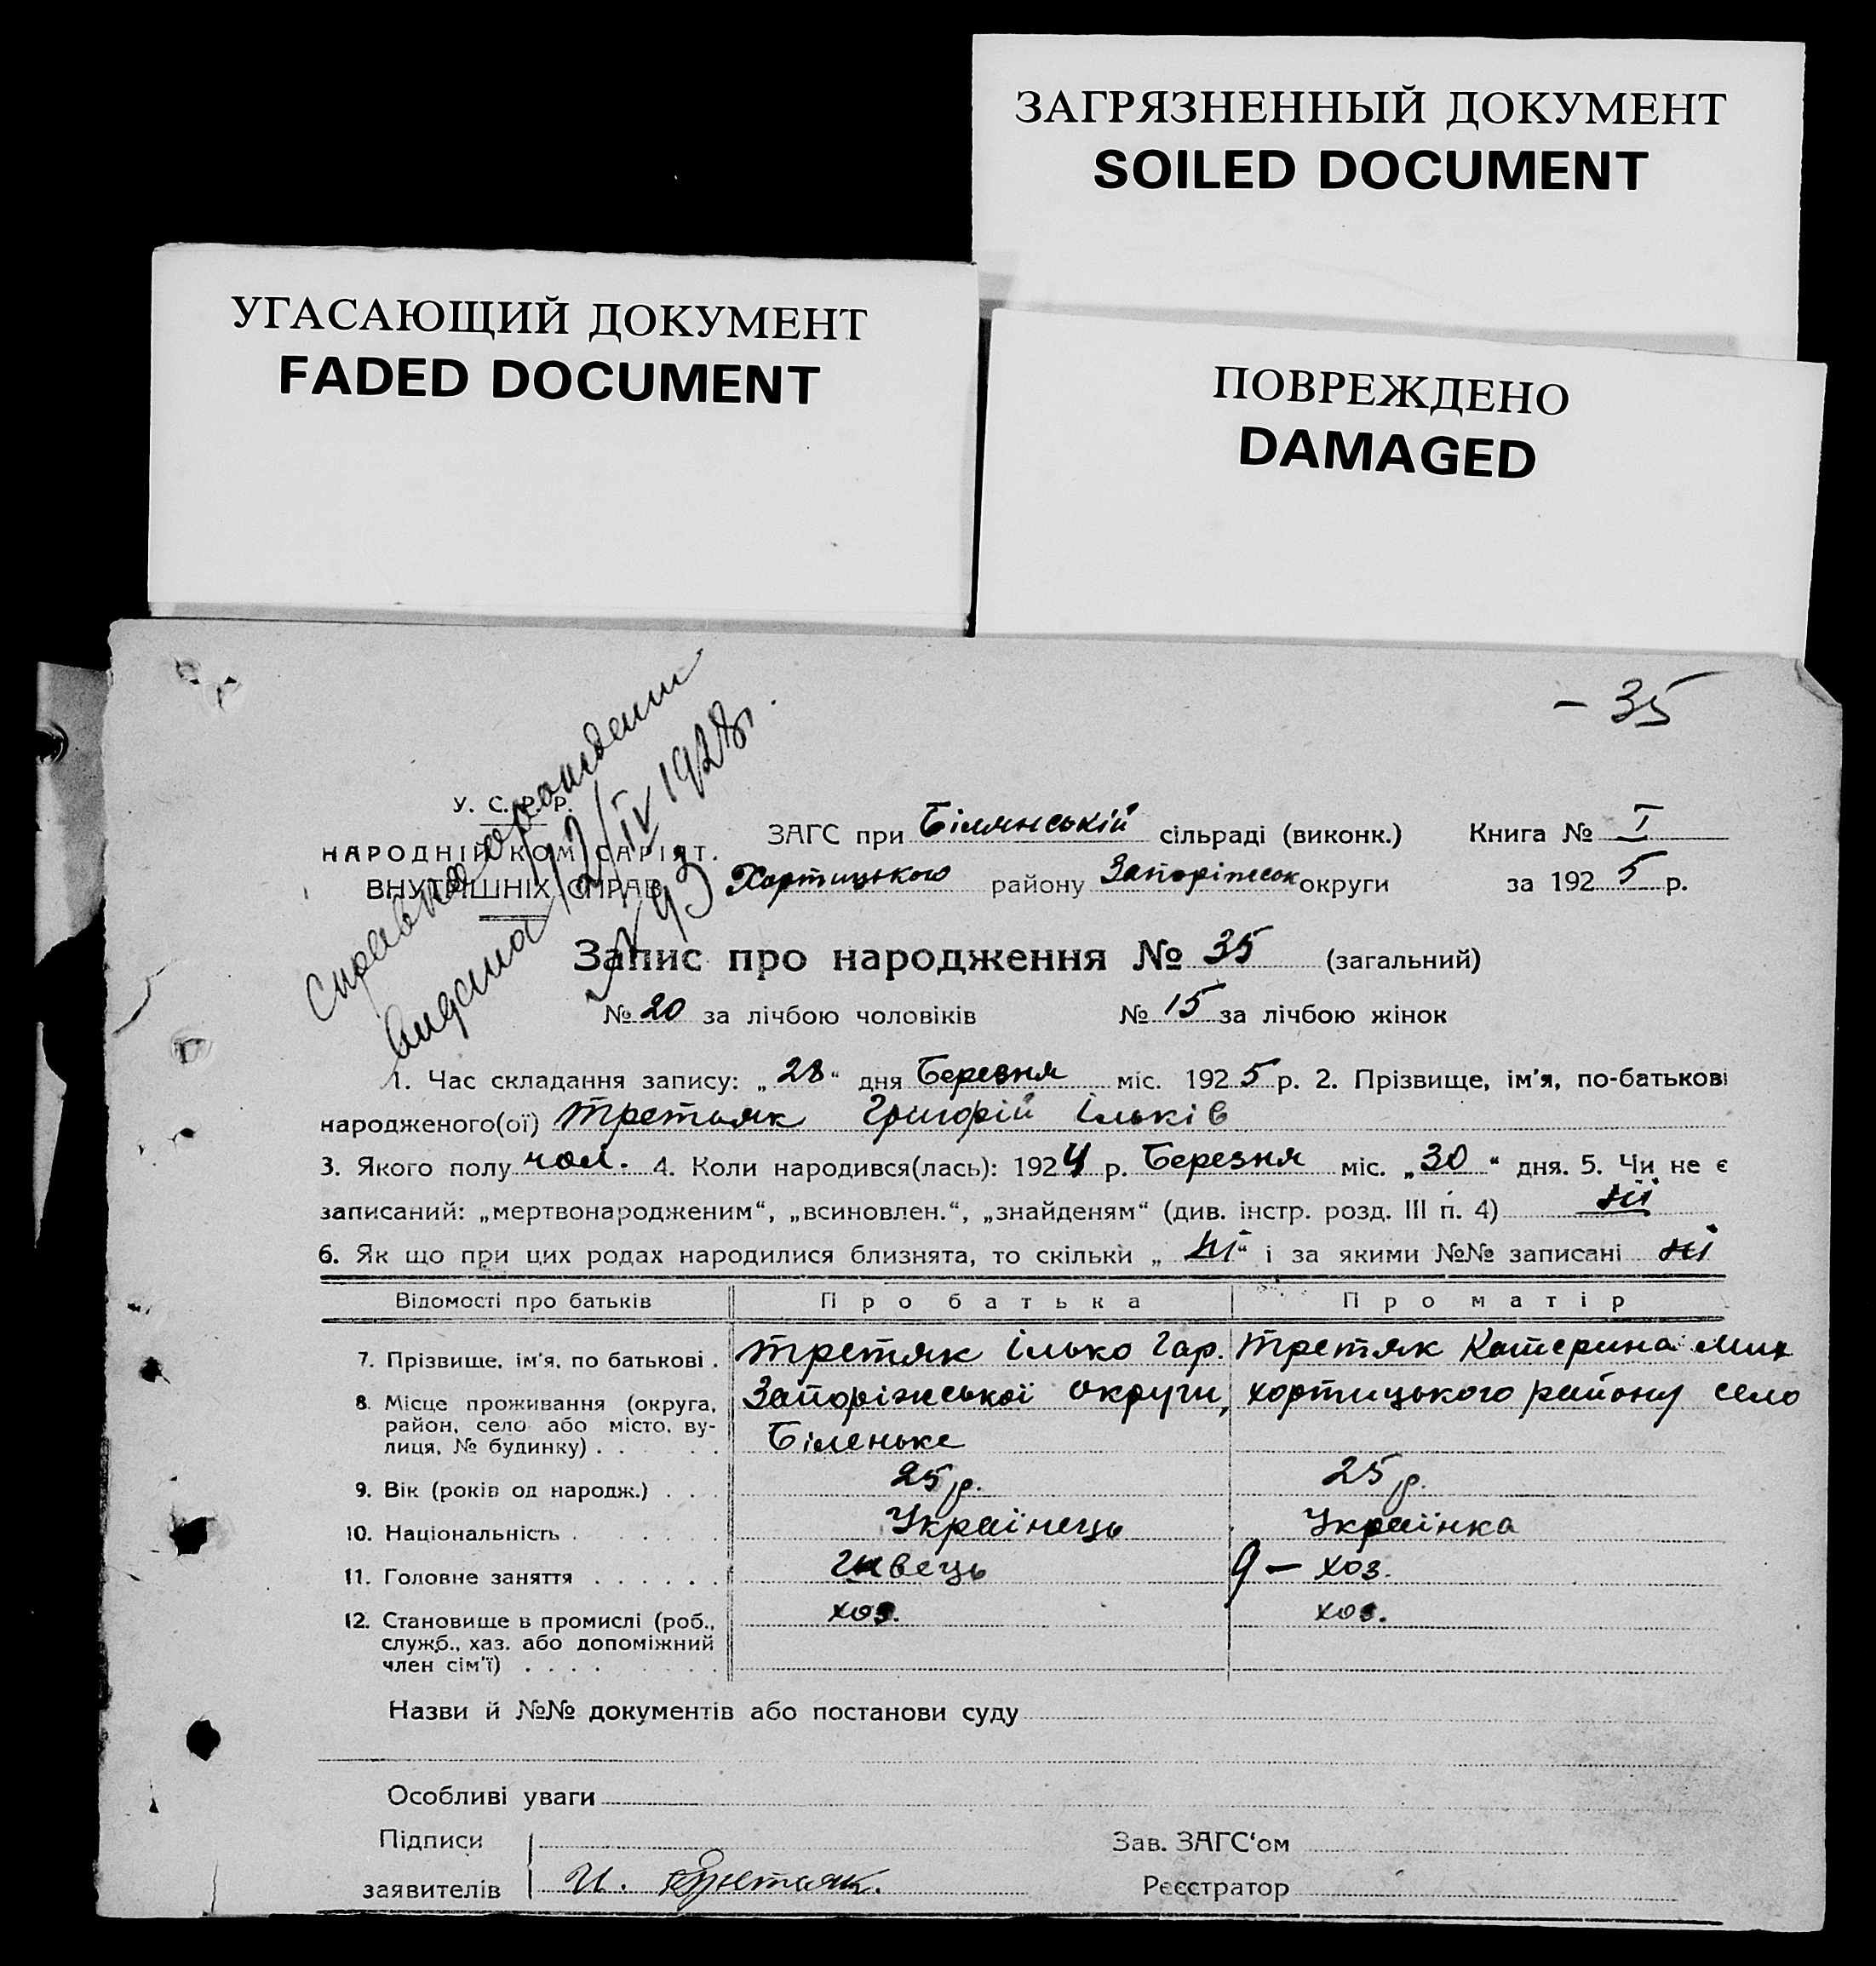 ЗАГРЯЗНЕННЫЙ ДОКУМЕНТ
SOILED DOCUMENT
УГАСАЮЩИЙ ДОКУМЕНТ
FADED DOCUMENT
ПОВРЕЖДЕНО
DAMAGED
– 35
Справка о рождении
видана 12/IV 1928г.
№ 93
У. С. Р. Р.
НАРОДНІЙ КОМІСАРІЯТ.
ВНУТРІШНІХ СПРАВ
ЗАГС при Білянській сільраді (виконк.) Книга № I
Хортицького району Запоріжськ округи за 1925 р.
Запис про народження № 35 (загальний)
№ 20 за лічбою чоловіків № 15 за лічбою жінок
1. Час складання запису: „28“ дня Березня міс. 1925 р. 2. Прізвище, ім'я, по-батькові
народженого(ої) Третьяк Григорій Ільків
3. Якого полу чол. 4. Коли народився(лась): 1924 р. Березня міс. „30“ дня. 5. Чи не є
записаний: „мертвонародженим“, „всиновлен.“, „знайденям“ (див. інстр. розд. III п. 4) ні
6. Як що при цих родах народилися близнята, то скільки „ні“ і за якими №№ записані ні
Відомості про батьків Про батька Про матір
7. Прізвище, ім'я, по батькові . Третяк Ілько Гар. Третяк Катерина Мих
8. Місце проживання (округа, район, село або місто, вулиця, № будинку) . . Запоріжської округи, хортицького району село
Біленьке
9. Вік (років од народж.) . . . 25 р. 25 р.
10. Національність . . . . . Українець Українка
11. Головне заняття . . . . . . швець 9 – хоз.
12. Становище в промислі (роб., хоз. хоз.
служб., хаз. або допоміжний
член сім'ї) . . . . . . . . .
Назви й №№ документів або постанови суду
Особливі уваги
Підписи Зав. ЗАГС'ом
заявителів И. Третьяк. Реєстратор